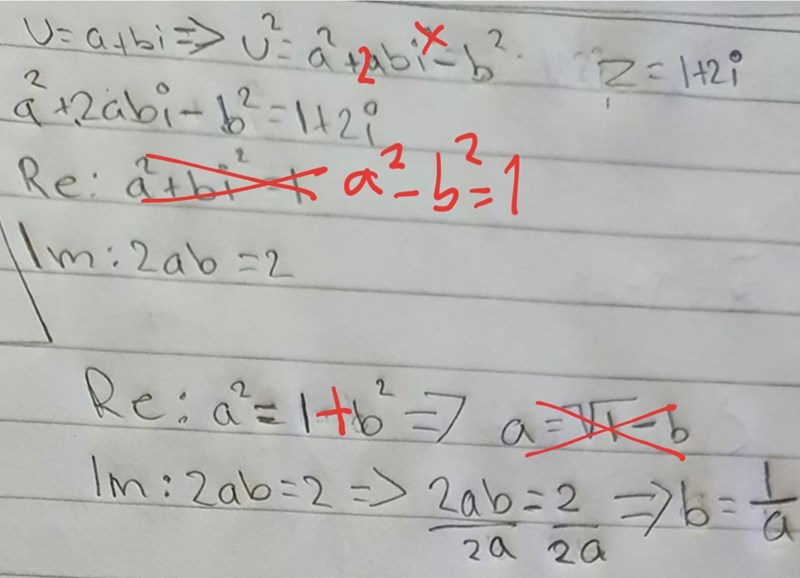 U = a+bi => U² = a² + 2abi x - b². Z = 1+2i
a² + 2abi - b² = 1+2i
Re: a² + bi² = 1 a² - b² = 1
Im: 2ab = 2
Re: a² = 1 + b² => a = √1 - b
Im: 2ab = 2 => 2ab/2a = 2/2a => b = 1/a